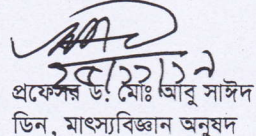 ২৫/১১/১৭
প্রফেসর ড. মোঃ আবু সাঈদ
ডিন, মাৎস্যবিজ্ঞান অনুষদ